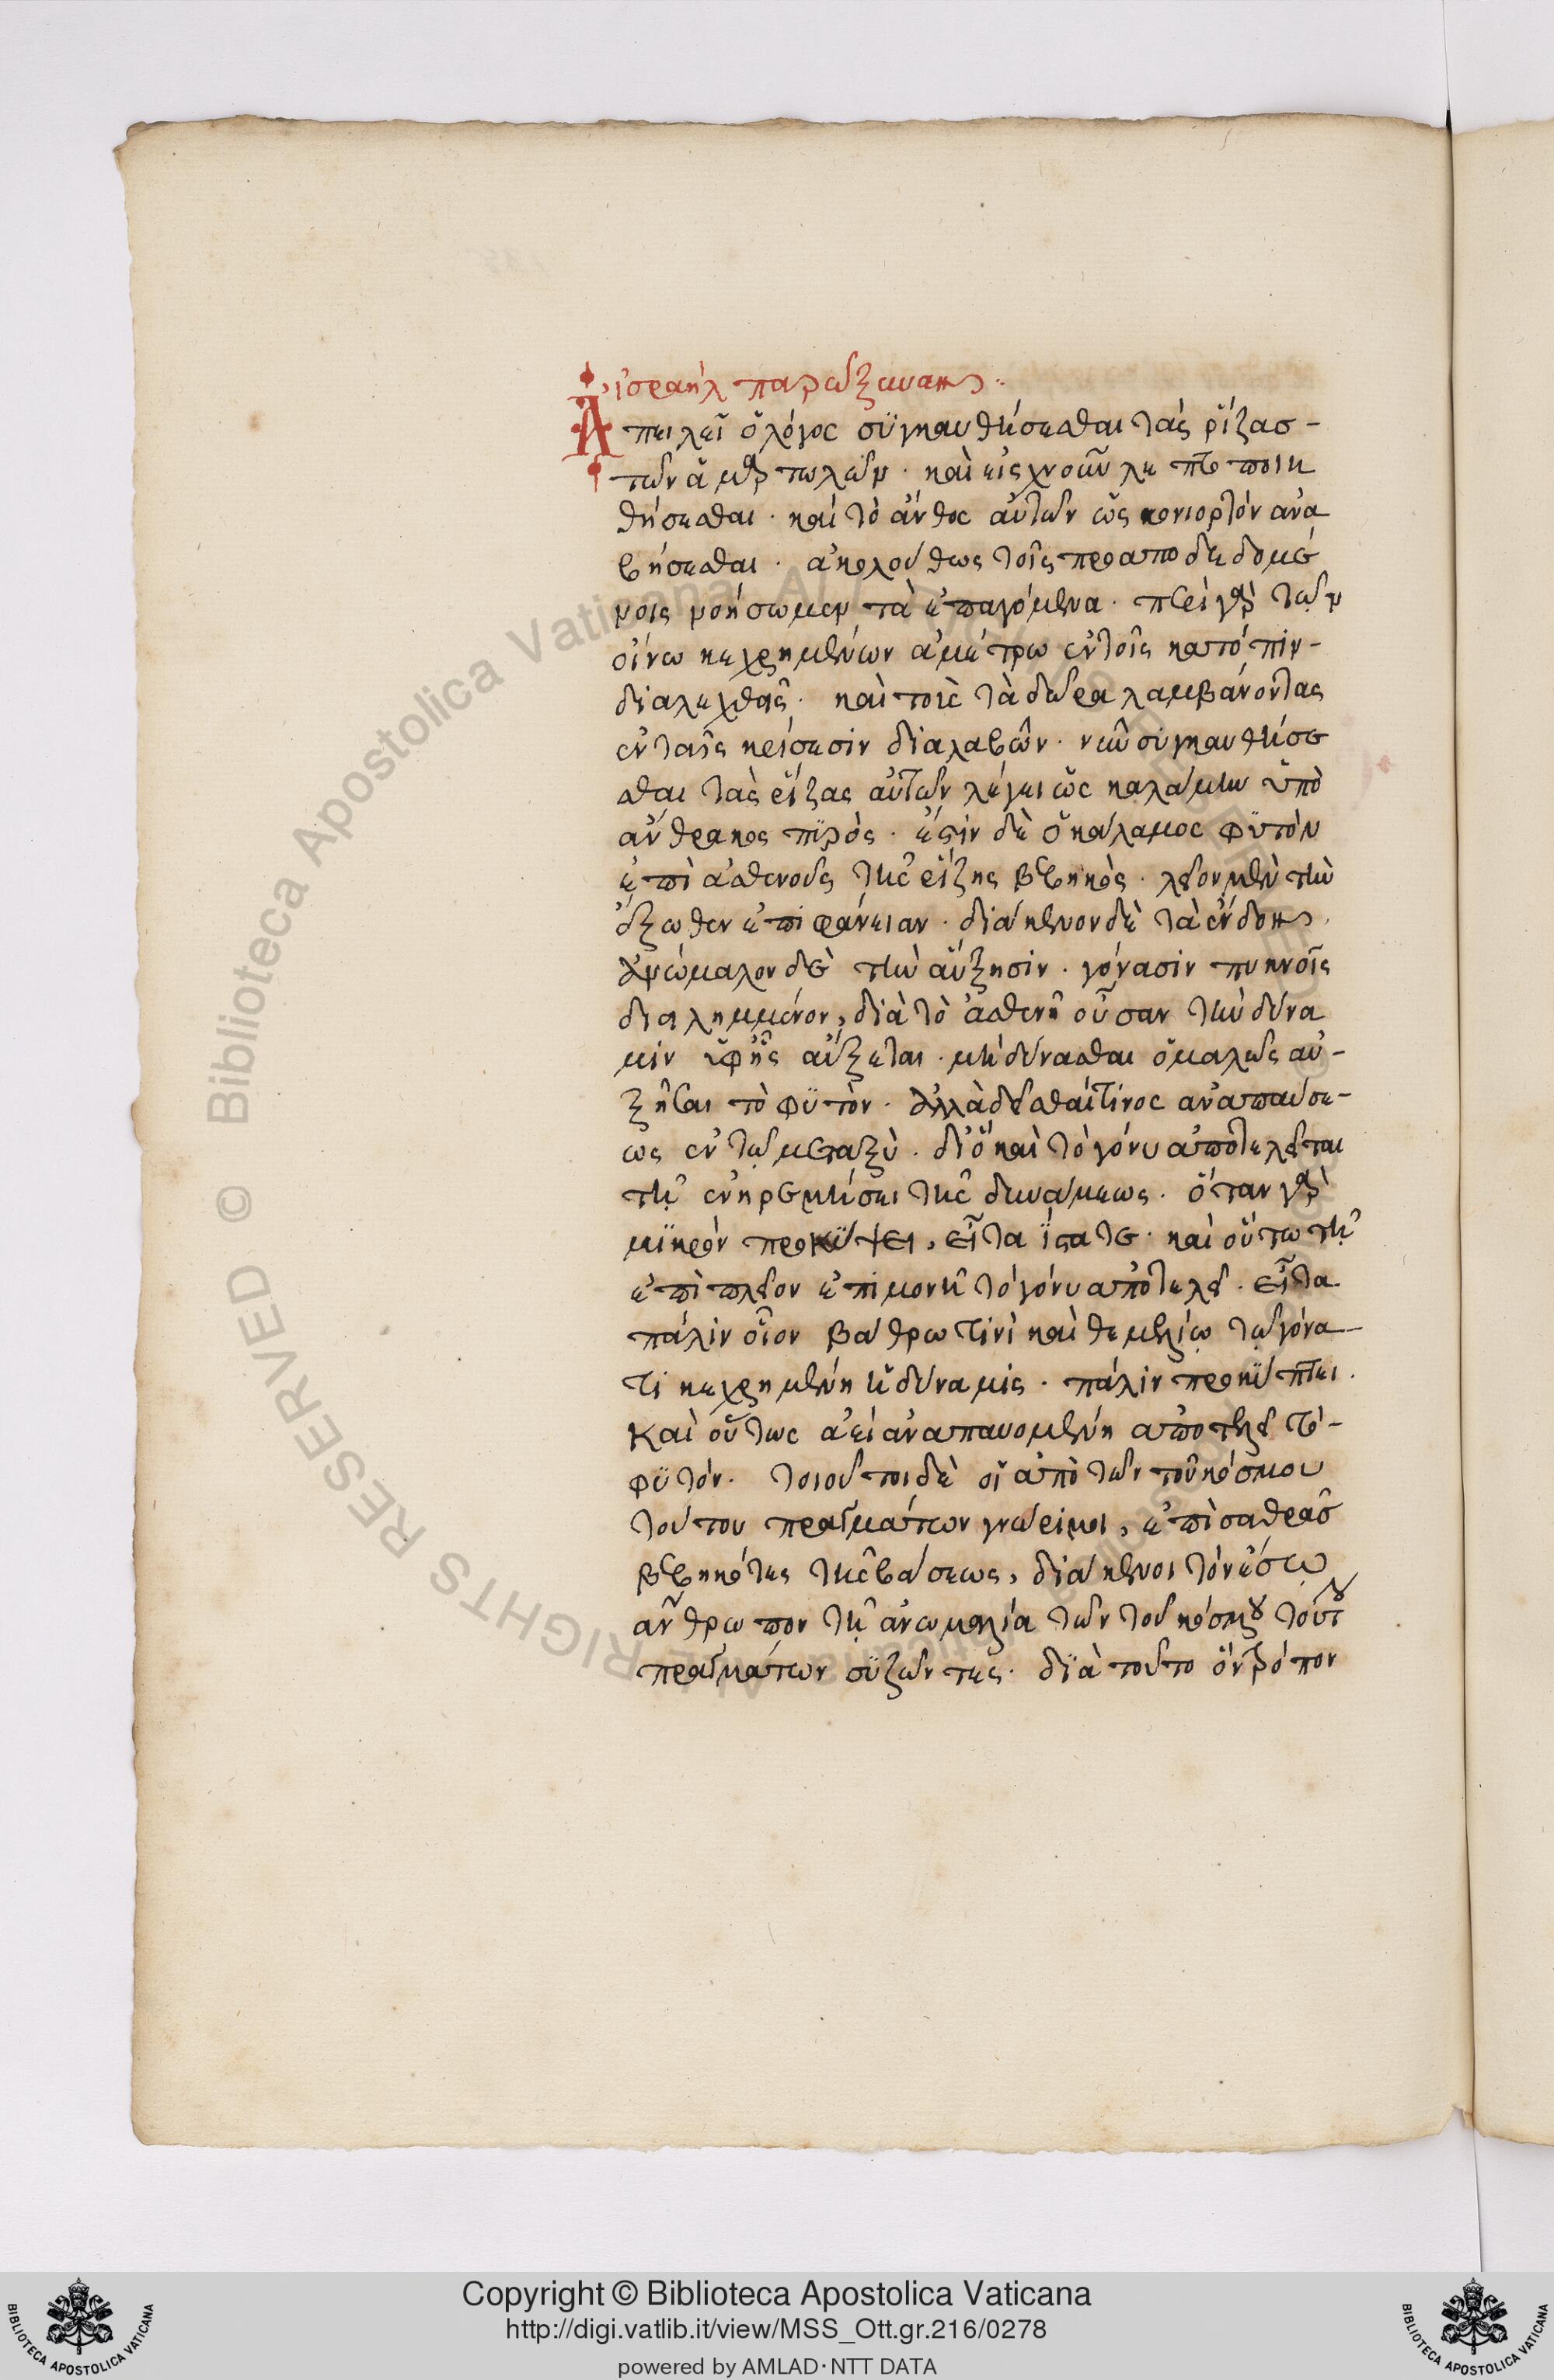 ἰσραὴλ παρώξυναν:
Ἀπειλεῖ ὁ λόγος συγκαυθήσεσθαι τὰς ρίζας -
τῶν ἁμαρτωλῶν · καὶ εἰς χνοῦν λεπτο ποιη
θήσεσθαι · καὶ τὸ ἄνθος αὐτῶν ὡς κονιορτὸν ἀνα
βήσεσθαι · ἀκολούθως τοῖς προαποδεδομέ
νοις νοήσωμεν τὰ ἐπαγόμενα · περὶ γὰρ τῶν
οἴνω κεχρημένων ἀμέτρω ἐν τοῖς κατόπιν -
διαλεχθεὶς · καὶ τοὺς τὰ δῶρα λαμβάνοντας
ἐν ταῖς κρίσεσιν διαλαβὼν · νῦν συγκαυθήσε
σθαι τὰς ρίζας αὐτῶν λέγει ὡς καλάμην ὑπὸ
ἄνθρακος πυρός · ἔστιν δὲ ὁ κάλαμος φυτὸν
ἐπὶ ἀσθενοῦς τῆς ρίζης βεβηκὸς · λεῖον μὲν τὴν
ἔξωθεν ἐπιφάνειαν · διάκενον δὲ τὰ ἔνδον,
ἀνώμαλον δὲ τὴν αὔξησιν · γόνασιν πυκνοῖς
διειλημμένον, διὰ τὸ ἀσθενῆ οὖσαν τὴν δύνα
μιν ὑφ' ἧς αὔξεται · μὴ δύνασθαι ὁμαλῶς αὐ -
ξῆσαι τὸ φυτὸν · ἀλλὰ δεῖσθαί τινος ἀναπαύσε -
ως ἐν τῷ μεταξὺ · διὸ καὶ τὸ γόνυ ἀποτελεῖται
τῇ ἐνηρεμήσει τῆς δυνάμεως · ὅταν γὰρ
μικρὸν προκύψει, εἶτα ἵσταται · καὶ οὕτω τῇ
ἐπὶ πλεῖον ἐπιμονῇ τὸ γόνυ ἀποτελεῖ · εἶτα
πάλιν οἷον βάθρω τινὶ καὶ θεμελίῳ τῷ γόνα -
τι κεχρημένη ἡ δύναμις · πάλιν προκύπτει ·
Καὶ οὕτως ἀεὶ ἀναπαυομένη ἀποτελεῖ τὸ -
φυτόν · τοιοῦτοι δὲ οἱ ἀπὸ τῶν τοῦ κόσμου
τούτου πραγμάτων γνώριμοι, ἐπὶ σαθρᾶς
βεβηκότες τῆς βάσεως, διάκενοι τὸν ἔσω
ἄνθρωπον τῇ ἀνωμαλία τῶν τοῦ κόσμου τούτου
πραγμάτων συζῶντες · διὰ τοῦτο ὃν τρόπον